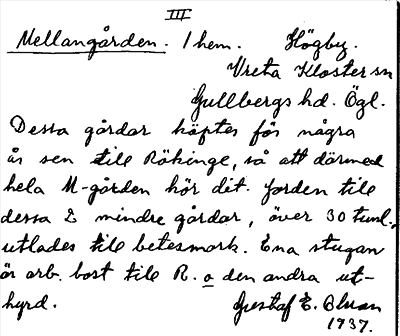 III
Mellangården. 1 hem. Högby.
Vreta Kloster sn
Gullbergs hd. Ögl.
Dessa gårdar köptes för några
år sen till Rökinge, så att därmed
hela M-gården hör dit. Jorden till
dessa 2 mindre gårdar, över 30 tunl.,
utlades till betesmark. Ena stugan
är arb. bost till R. o den andra ut-
hyrd. Gustaf E.
1937.